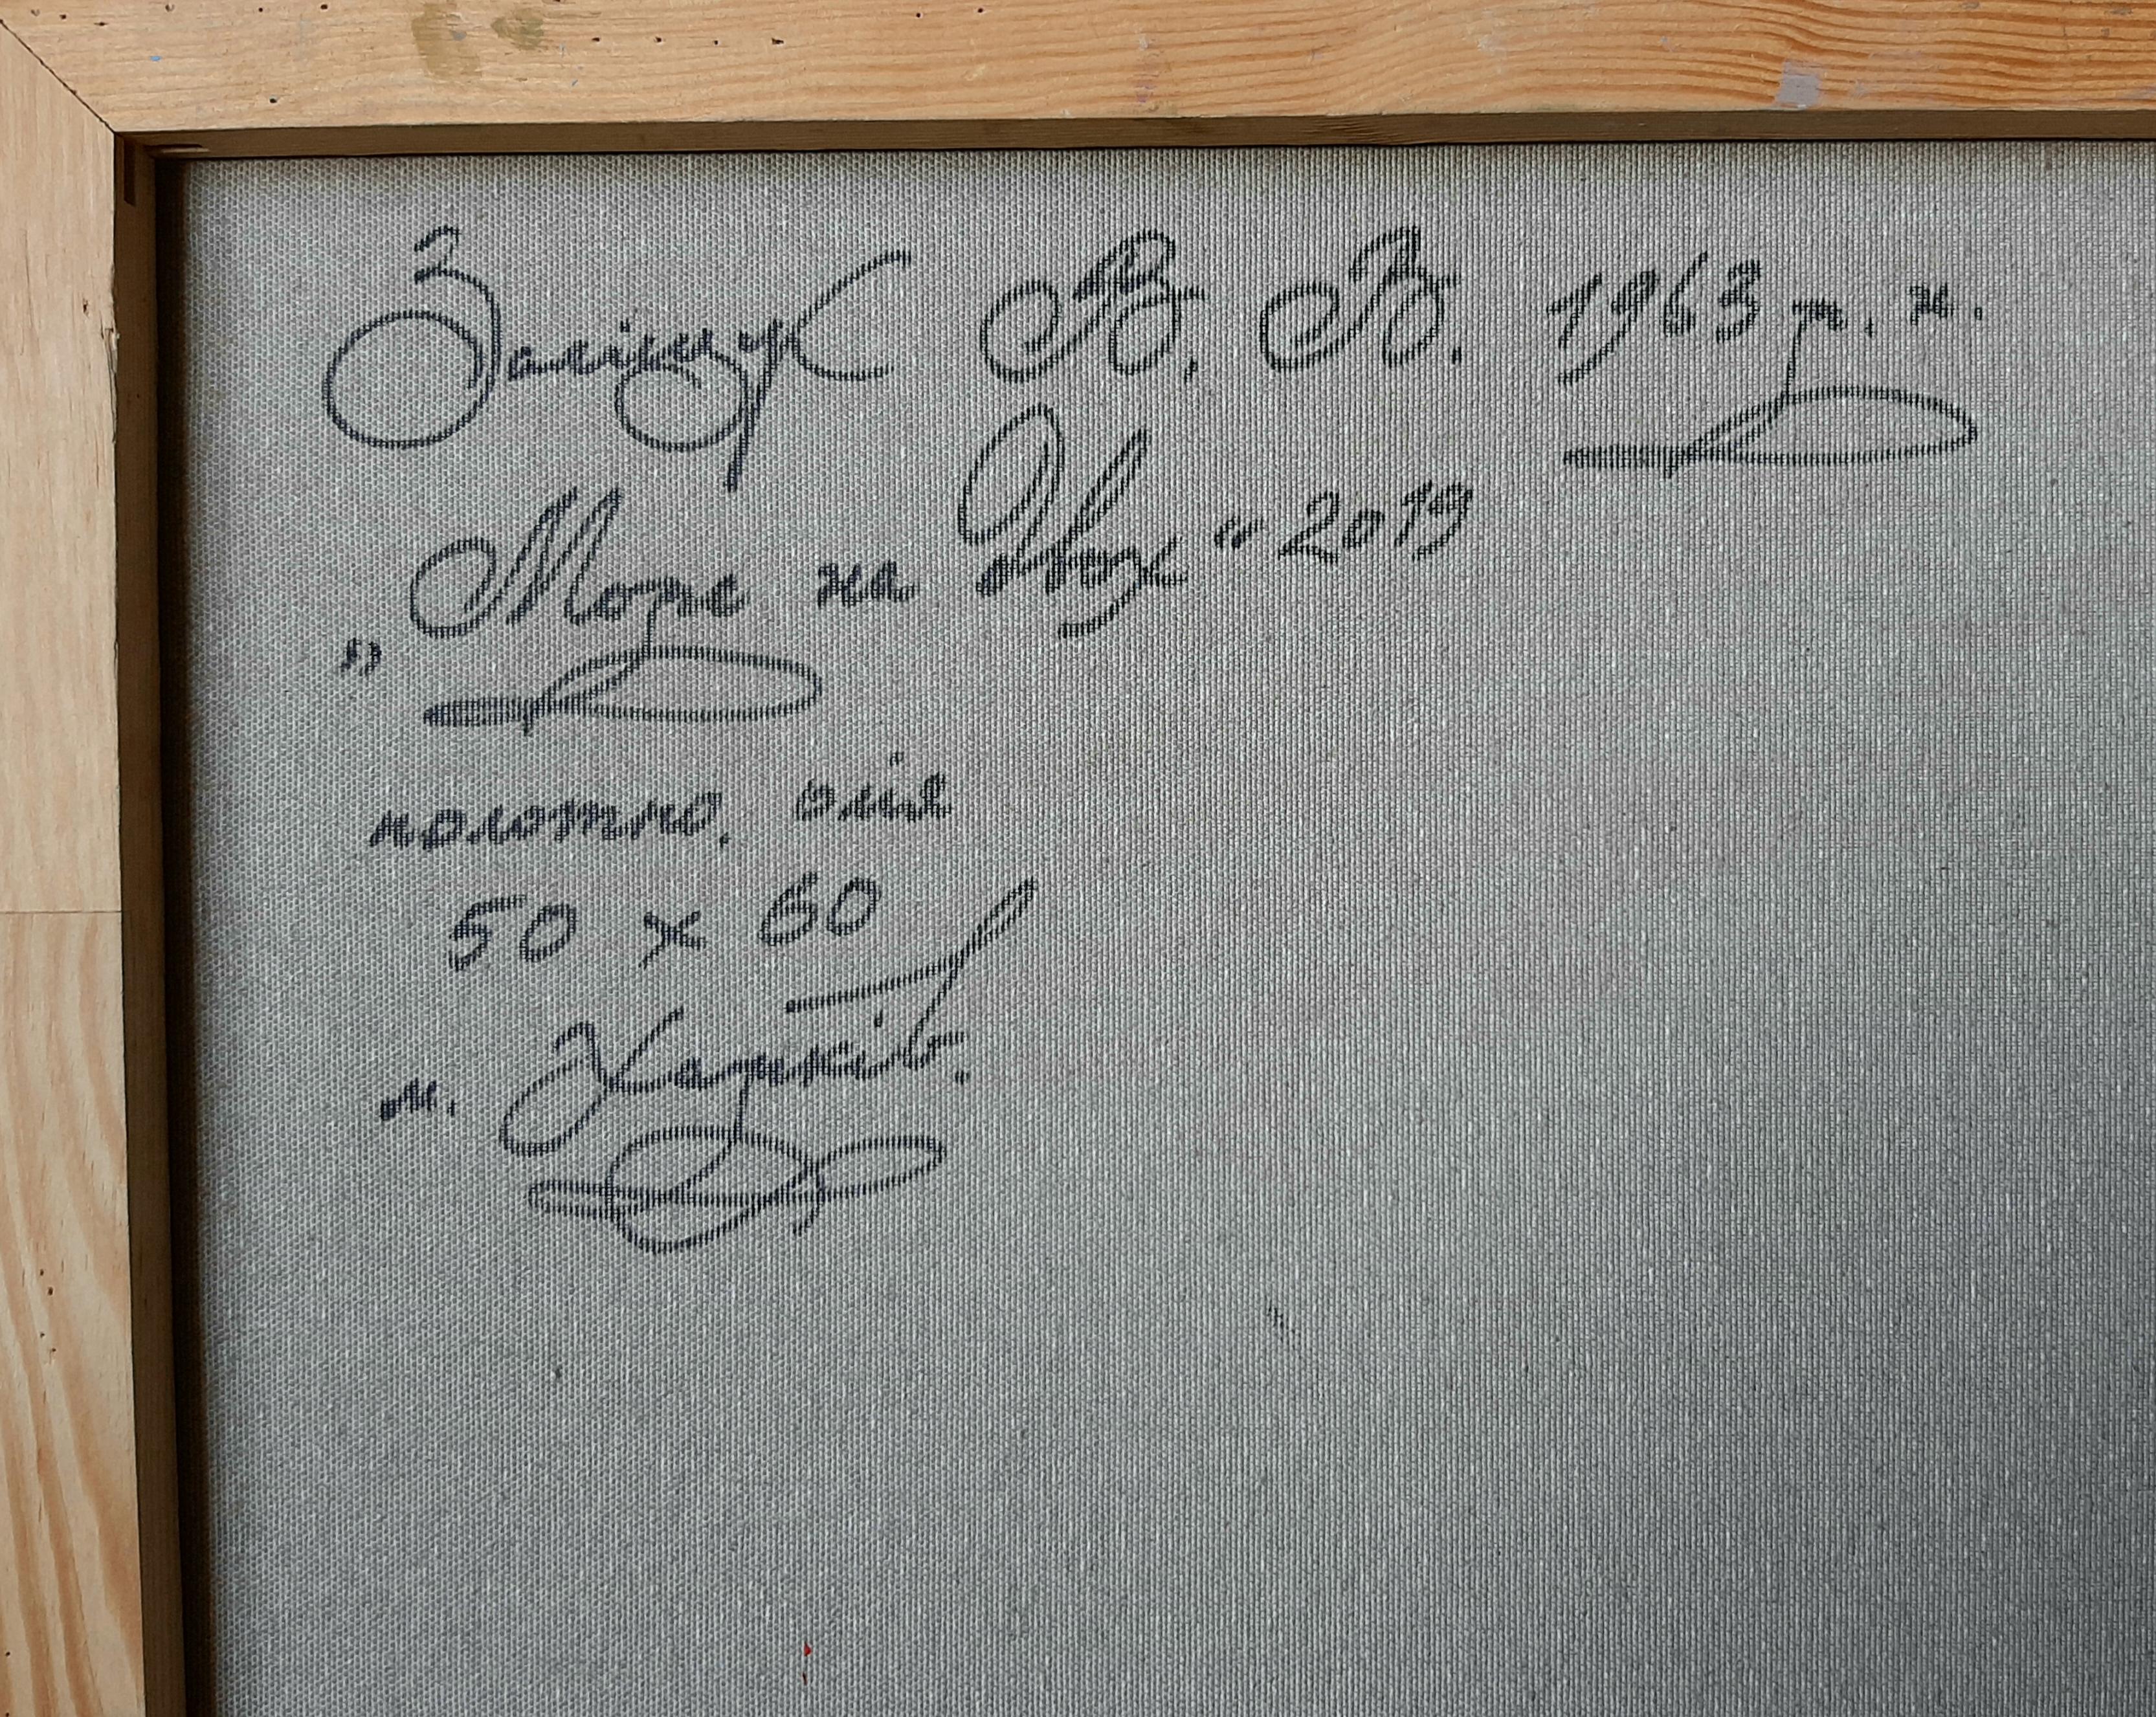 Заліщук В. В. 1963 р. н.
„Море на Двох“ 2019
полотно, олія
50 х 60
м. Харків.